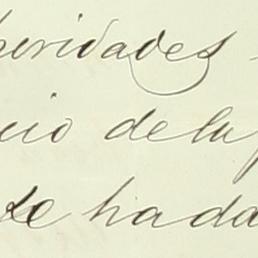 peridades
cio de la
te ha da